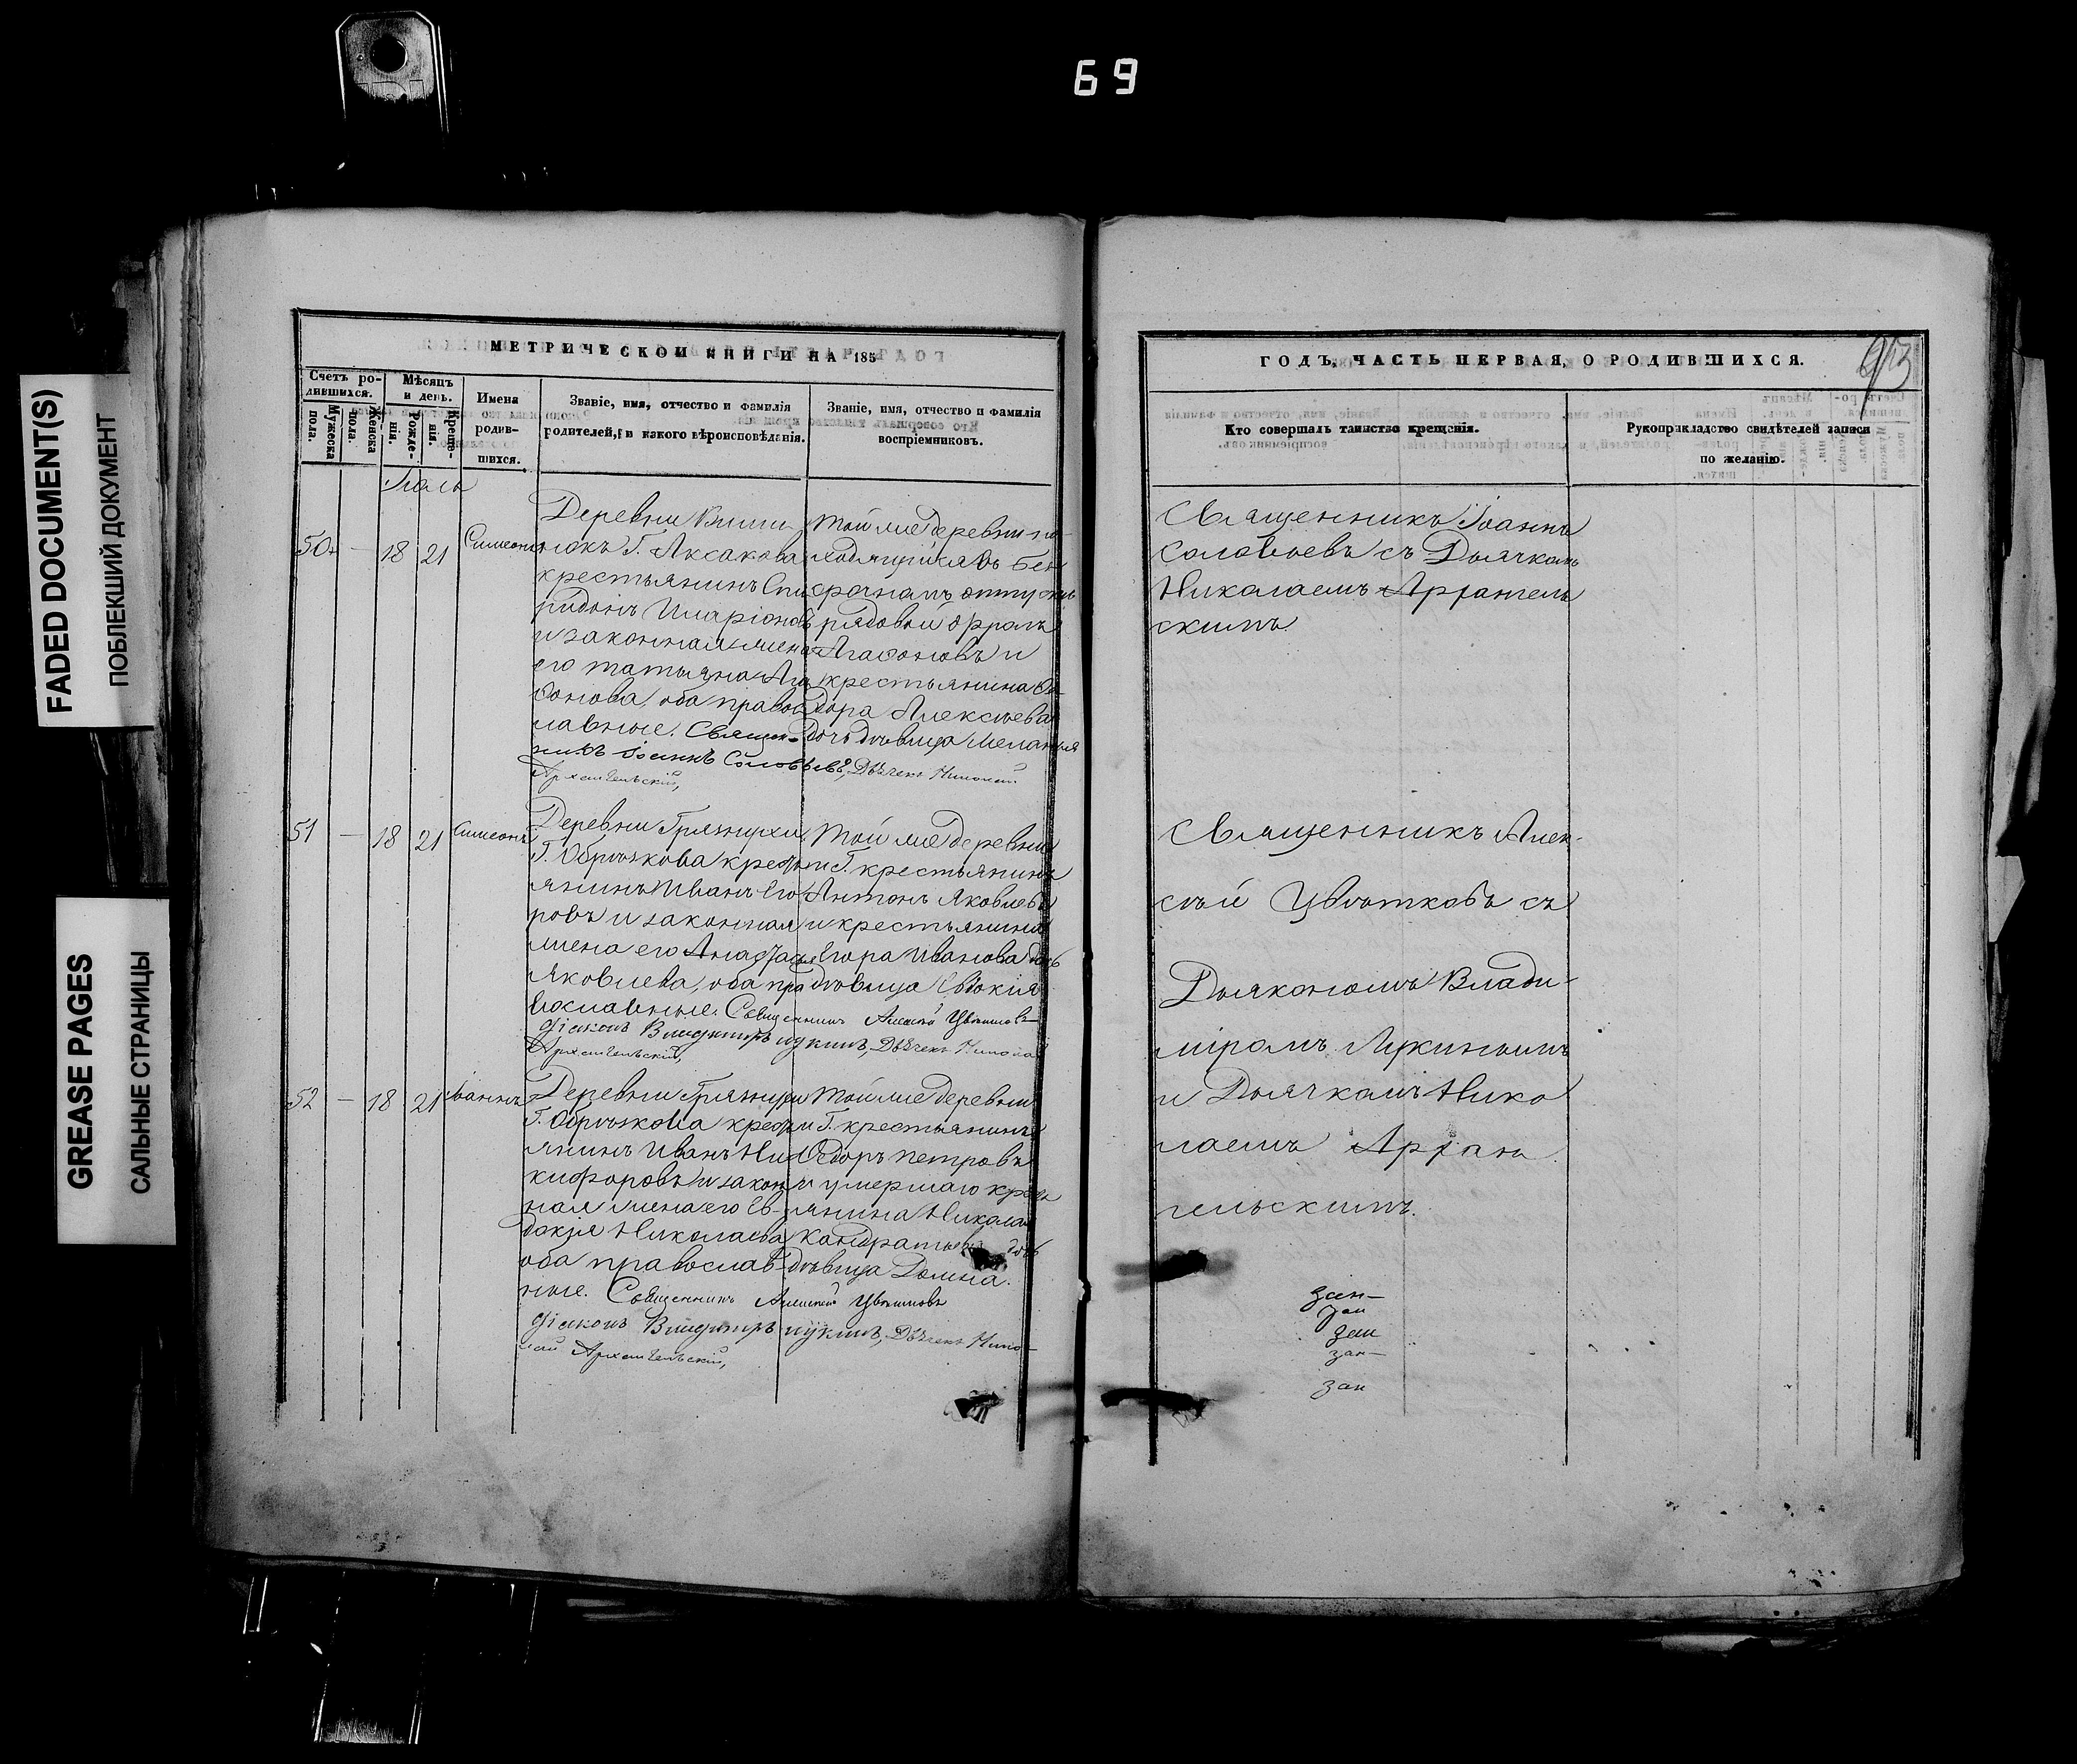 69
FADED DOCUMENT(S)
ПОБЛЕКШИЙ ДОКУМЕНТ
GREASE PAGES
САЛЬНЫЕ СТРАНИЦЫ
МЕТРИЧЕСКОЙ КНИГИ НА 185
Счетъ ро-
дившихся.
Мужеска
пола.
Женска
пола.
Мѣсяцъ
и день.
Рожде-
нія.
Креще-
нія.
Имена
родив-
шихся.
Званіе, имя, отчество и фамилія
родителей, и какого вѣроисповѣданія.
Званіе, имя, отчество и фамилія
воспріемниковъ.
50 — 18 21 Симеонъ
Деревни
Г. Аксакова
крестьянинъ Спи
ридонъ Иларіоновъ
и законная жена
его татьяна Ага
ѳонова, оба право
славные. Священ-
никъ Іоаннъ Соловьевъ, Дьячекъ Николай
Архангельскій,
той же деревни
срочномъ отпуску
рядовой
Агаѳоновъ и
крестьянина Ѳе
дора Алексѣева
дочь дѣвица Меланія
51 — 18 21 Симеонъ
Деревни Грязнухи
Г. Обрѣзкова кресть
янинъ Иванъ Его
ровъ и законная
жена его Анастасія
Яковлева, оба пра
вославные. Священникъ Алексѣй Цвѣтковъ
Діаконъ Владиміръ Лукинъ, Дьячекъ Николай
Архангельскій,
той же деревни
и Г. крестьянинъ
Антонъ Яковлевъ
и крестьянина
Егора Иванова дочь
дѣвица Евдокія
52 — 18 21 Іоаннъ
Деревни Грязнухи
Г. Обрѣзкова кресть
янинъ Иванъ Ни
кифоровъ и закон
ная жена его Ев-
докія Николаева
оба православ-
ные. Священникъ Алексѣй Цвѣтковъ
Діаконъ Владиміръ Лукинъ, Дьячекъ Нико-
лай Архангельскій,
той же деревни
и Г. крестьянинъ
Ѳедоръ Петровъ
и умершаго кресть
янина Николая
Кондратьева дочь
дѣвица Домна.
ГОДЪ, ЧАСТЬ ПЕРВАЯ, О РОДИВШИХСЯ.
93
Кто совершалъ таинство крещенія.
Рукоприкладство свидѣтелей записи
по желанію.
Священникъ Іоаннъ
Соловьевъ съ Дьячкомъ
Николаемъ Архангель
скимъ.
Священникъ Алек-
сѣй Цвѣтковъ съ
Дьякономъ Влади-
міромъ Лукинымъ
и Дьячкомъ Нико
лаемъ Архан
гельскимъ.